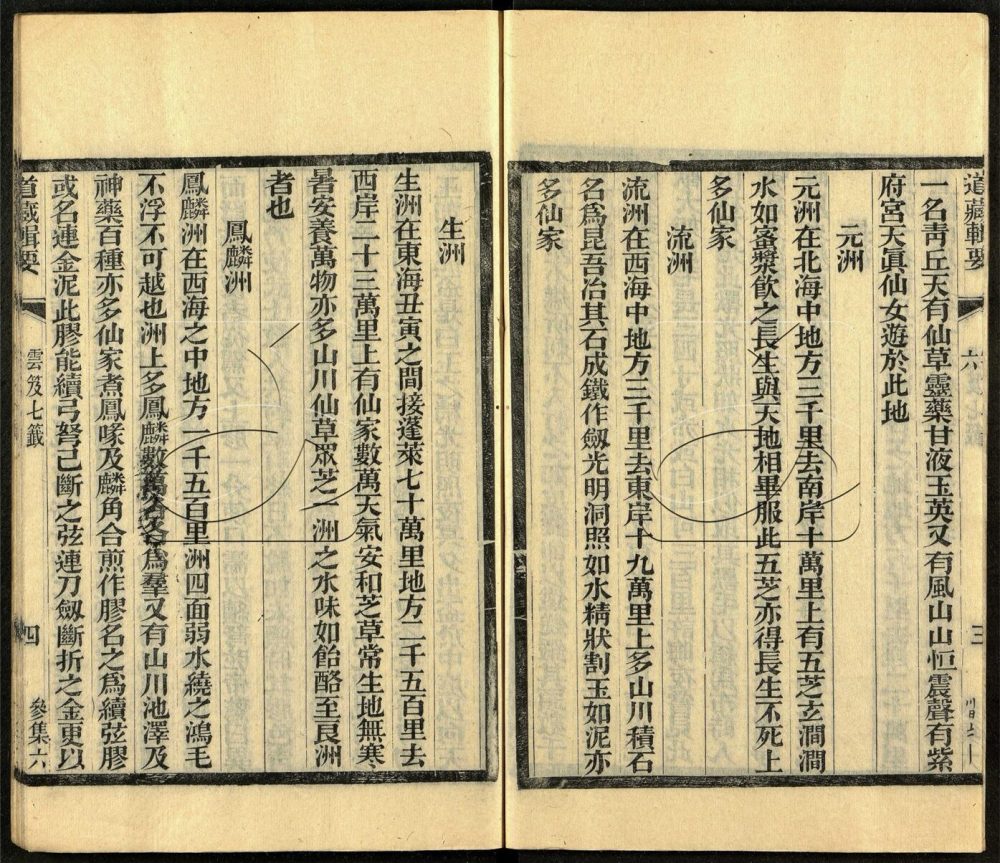 道藏輯要
六
三
一名青丘天有仙草靈藥甘液玉英又有風山山恒震聲有紫
府宮天眞仙女遊於此地
元洲
元洲在北海中地方三千里去南岸十萬里上有五芝玄澗澗
水如蜜漿飲之長生與天地相畢服此五芝亦得長生不死上
多仙家
流洲
流洲在西海中地方三千里去東岸十九萬里上多山川積石
名爲昆吾冶其石成鐵作劔光明洞照如水精狀割玉如泥亦
多仙家
生洲
生洲在東海丑寅之間接蓬萊七十萬里地方二千五百里去
西岸二十三萬里上有仙家數萬天氣安和芝草常生地無寒
暑安養萬物亦多山川仙草眾芝一洲之水味如飴酪至良洲
者也
鳳麟洲
鳳麟洲在西海之中地方一千五百里洲四面弱水繞之鴻毛
不浮不可越也洲上多鳳麟數萬各各爲羣又有山川池澤及
神藥百種亦多仙家煮鳳喙及麟角合煎作膠名之爲續弦膠
或名連金泥此膠能續弓弩己斷之弦連刀劔斷折之金更以
道藏輯要
雲笈七籤
四
參集六